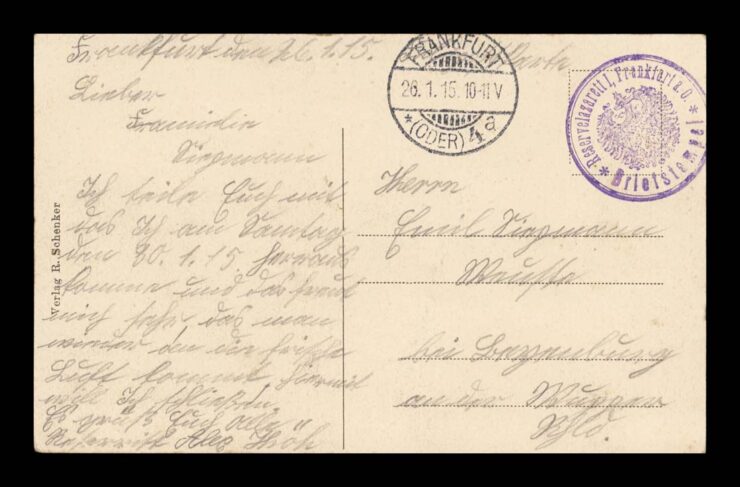 Frankfurt den 26.1.15.
Lieber
Framielie
Siegmann
Ich teile Euch mit
das Ich am Samtag
den 30.1.15. heraus
komme und das freut
mich sehr das man
wieder den die frische
Luft kommt, hiermit
will Ich schließen
Es grüßt Euch alle
Reservist Alex
Verlag R. Schenker
FRANKFURT
26.1.15.10-11V
*(ODER)4a
Reservelazarett I, Frankfurt a.O.
* Briefstempel *
Herrn
Emil Siegmann
bei
an der